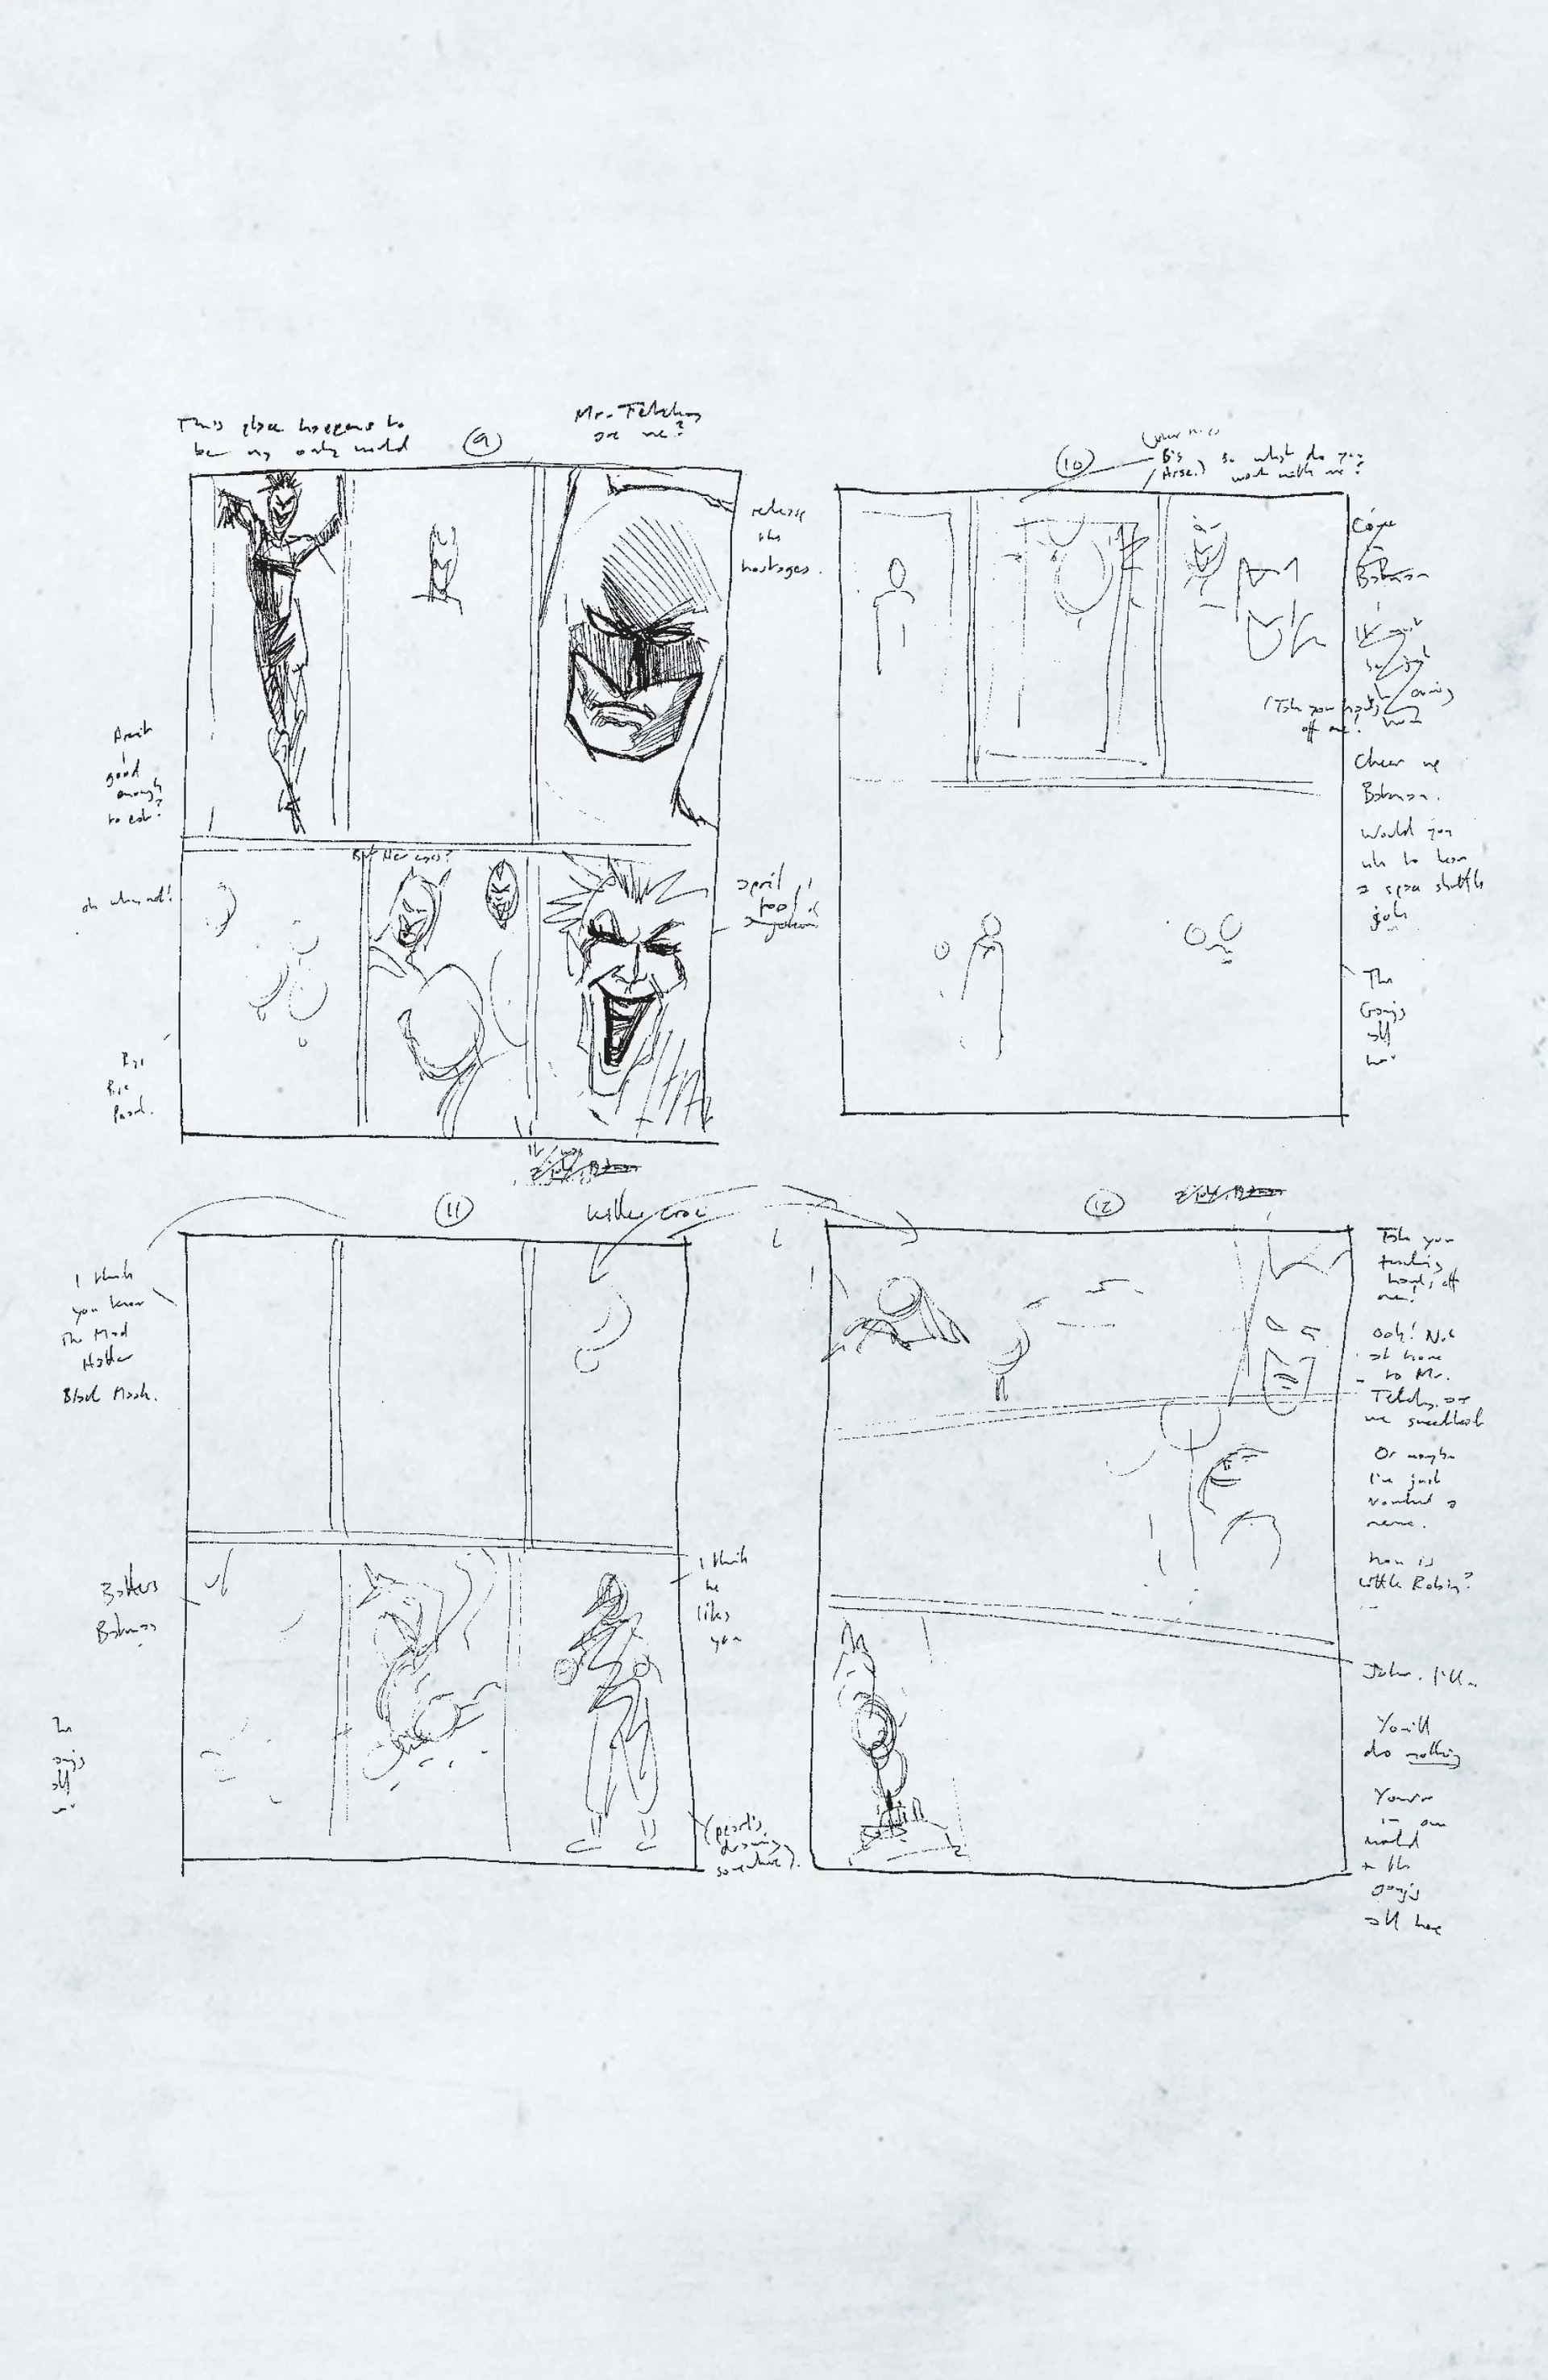 This place happens to
be my only world
9
Mr. Tetchy
are we?
release
the
hostages.
Aren't
I
good
enough
to eat?
oh why not!
But Her eyes?
april
fool
Bye
Bye
Pearl.
10
Big
Arse.)
so what do you
want with me?
Batman
(Take your hands
off me!
Cheer up
Batman.
Would you
like to hear
a space shuttle
joke
The
Gang's
all
here
11
Killer Croc
I think
you know
The Mad
Hatter
Black Mask.
Batters
Batman
I think
he
likes
you
The
gang's
all
here
(pearl's
drawing
somewhere).
12
Take your
hands off
me!
Ooh! Not
at home
to Mr.
Tetchy are
we sweetheart
Or maybe
I've just
touched a
nerve.
how is
little Robin?
Joker. I'll..
You'll
do nothing
You're
in our
world
the
gang's
all here